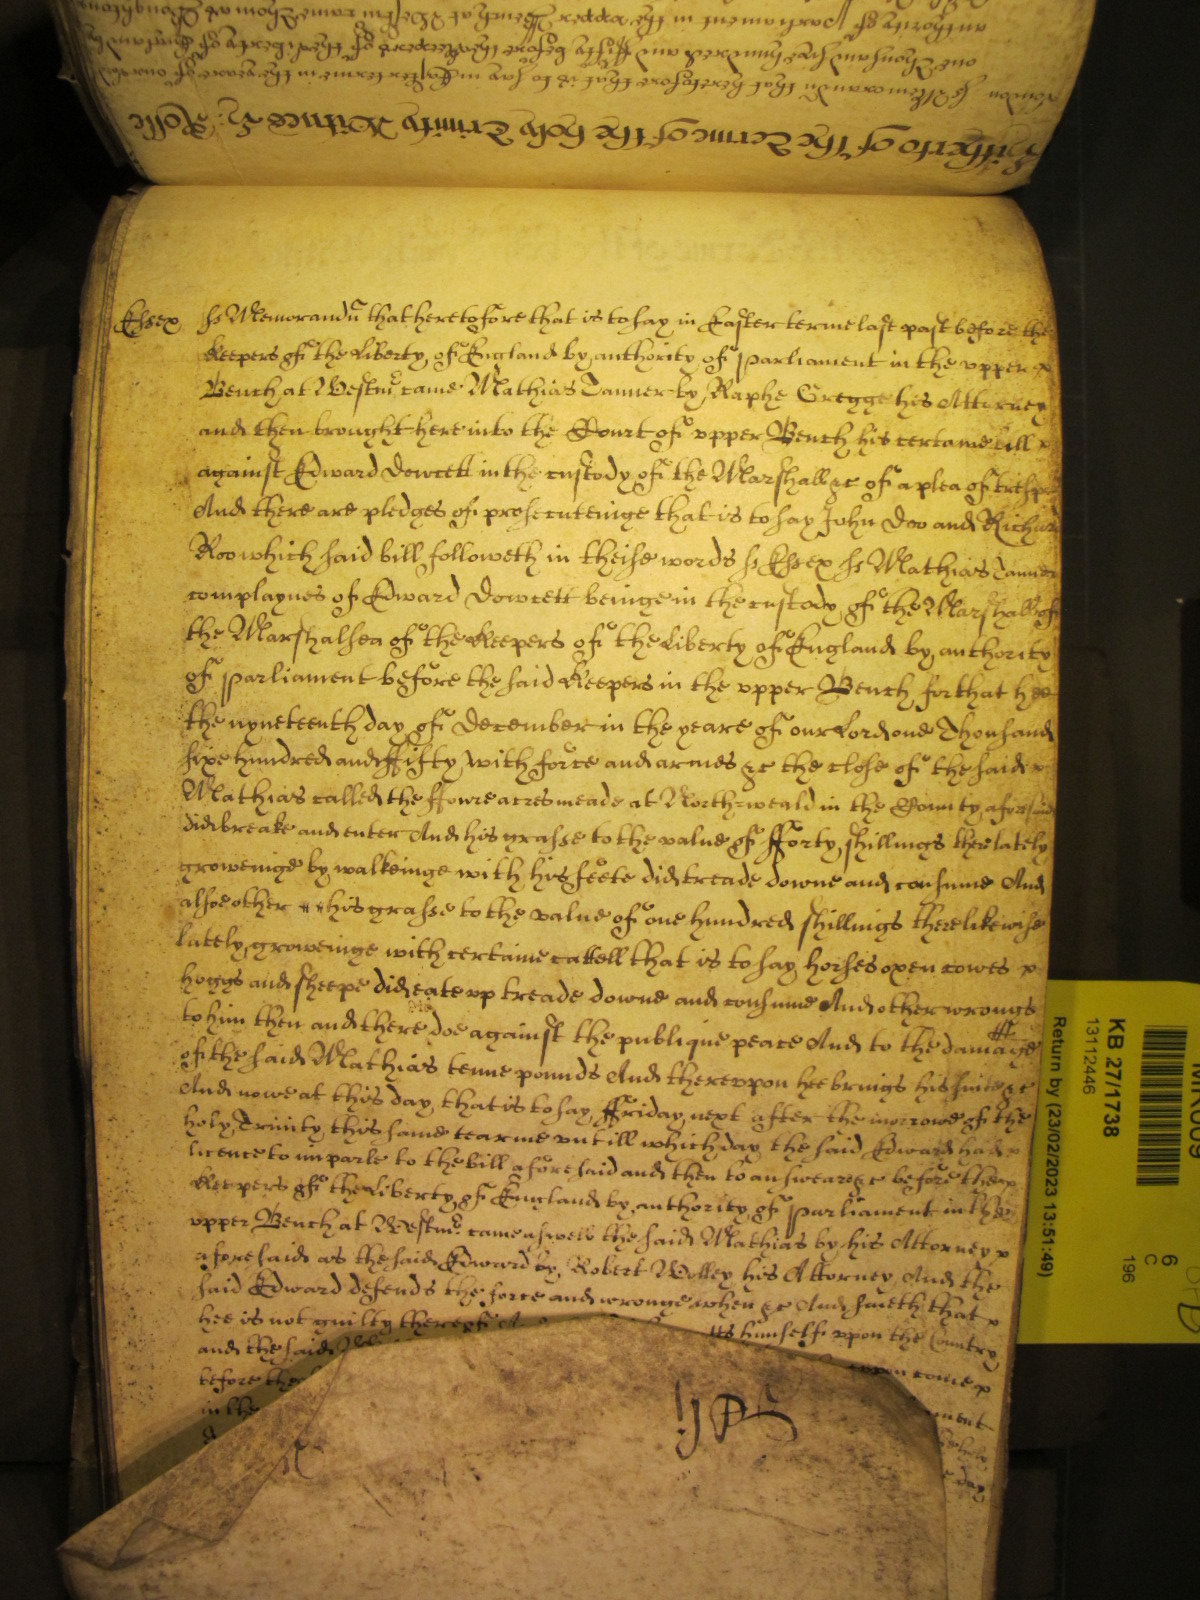 Hitherto of the Terme of the holy Trinity Witnes H: Rolle
London ss Memorandum that heretofore that is to say in Easter terme in the yeare of our Lord
one Thousand sixe hundred and ffifty before the Keepers of the Liberty of England by
authority of Parliament in the upper Bench at Westm came Thomas
Essex ss Memorandu that heretofore that is to say in Easter terme last past before the
Keepers of the Liberty of England by authority of Parliament in the upper x
Bench at Westmr came Mathias Tanner by Raphe Gregge his Attorney
and then brought here into the Court of upper Bench his certaine bill x
against Edward Dowcett in the custody of the Marshall &c of a plea of trespas
And there are pledges of prosecuteinge that is to say John Doo and Richard
Roo which said bill followeth in theise words ss Essex ss Mathias Tanner
complaynes of Edward Dowcett beinge in the custody of the Marshall of
the Marshalsea of the Keepers of the Liberty of England by authority
of Parliament before the said Keepers in the upper Bench for that hee
the nyneteenth day of December in the yeare of our Lord one Thousand
sixe hundred and ffifty with force and armes &c the close of the said x
Mathias called the ffowre acres meade at North=weald in the County aforesaid
did breake and enter And his grasse to the value of fforty shillings there lately
groweinge by walkeinge with his feete did treade downe and consume And
alsoe other his grasse to the value of one hundred shillings there likewise
lately groweinge with certaine cattell that is to say horses oxen cowes x
hoggs and sheepe did eate up treade downe and consume And other wrongs
to him then and there doe against the publique peace And to the damage
of the said Mathias tenne pounds And thereupon hee brings his suite &c
And nowe at this day that is to say ffriday next after the morrowe of the
holy Trinity this same tearme untill which day the said Edward had x
licence to imparle to the bill aforesaid and then to answeare &c before the x
Keepers of the Liberty of England by authority of Parliament in the
upper Bench at Westmr came aswell the said Mathias by his Attorney x
aforesaid as the said Edward by Robert Wolley his Attorney And the
said Edward defends the force and wronge when &c And saieth that x
hee is not guilty thereof himself upon the Country
and the said upon come x
before the
in the
day
KB 27/1738
13112446
Return by (23/02/2023 13:51:49)
6
C
196